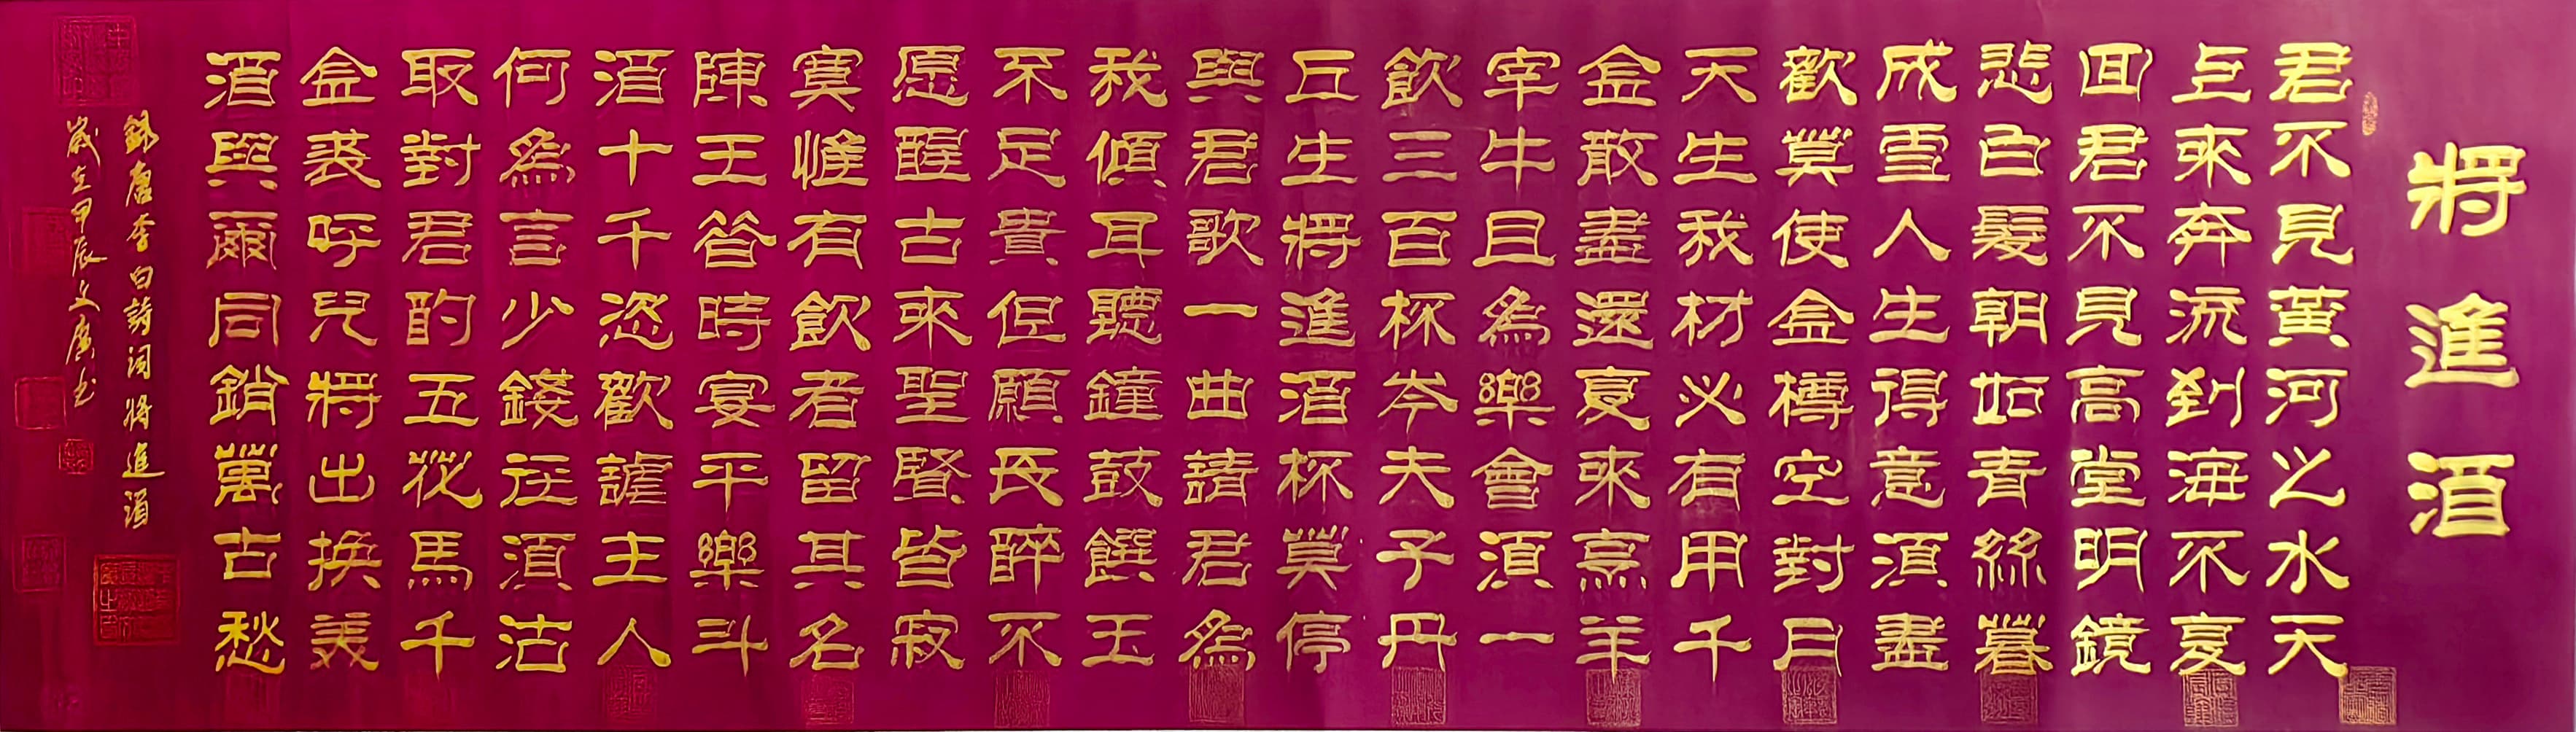 將進酒
君不見黃河之水天
上來奔流到海不复
回君不見高堂明鏡
悲白髮朝如青絲暮
成雪人生得意須盡
歡莫使金樽空對月
天生我材必有用千
金散盡還复來烹羊
宰牛且為樂會須一
飲三百杯岑夫子丹
丘生將進酒杯莫停
與君歌一曲請君為
我傾耳聽鐘鼓饌玉
不足貴但願長醉不
愿醒古來聖賢皆寂
寞惟有飲者留其名
陳王昔時宴平樂斗
酒十千恣歡謔主人
何為言少錢徑須沽
取對君酌五花馬千
金裘呼兒將出換美
酒與爾同銷萬古愁
錄唐李白詩詞將進酒
歲在甲辰文廣书